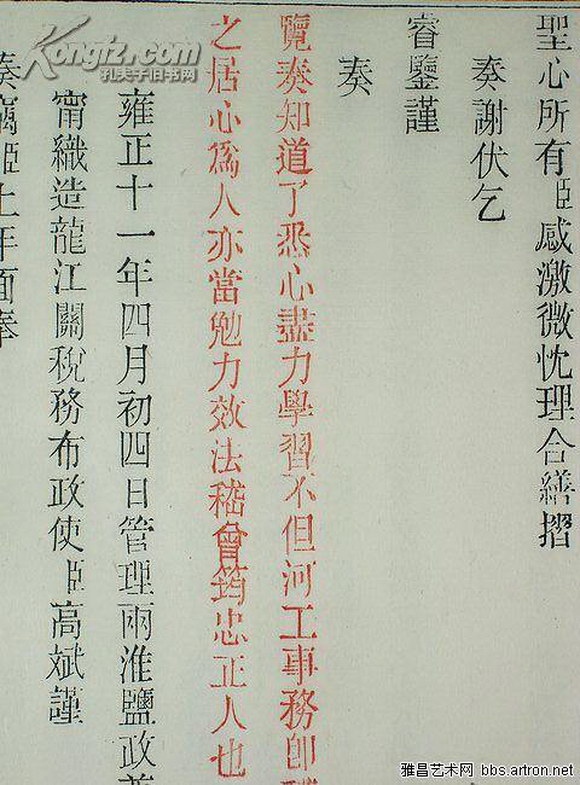 聖心所有臣感激微忱理合繕摺
奏謝伏乞
睿鑒謹
奏
覽奏知道了悉心盡力學習不但河工事務即
之居心為人亦當勉力效法嵇曾筠忠正人也
雍正十一年四月初四日管理兩淮鹽政兼
甯織造龍江關稅務布政使臣高斌謹
奏竊臣上年面奉
Kongfz.com
孔夫子旧书网
雅昌艺术网 bbs.artron.net